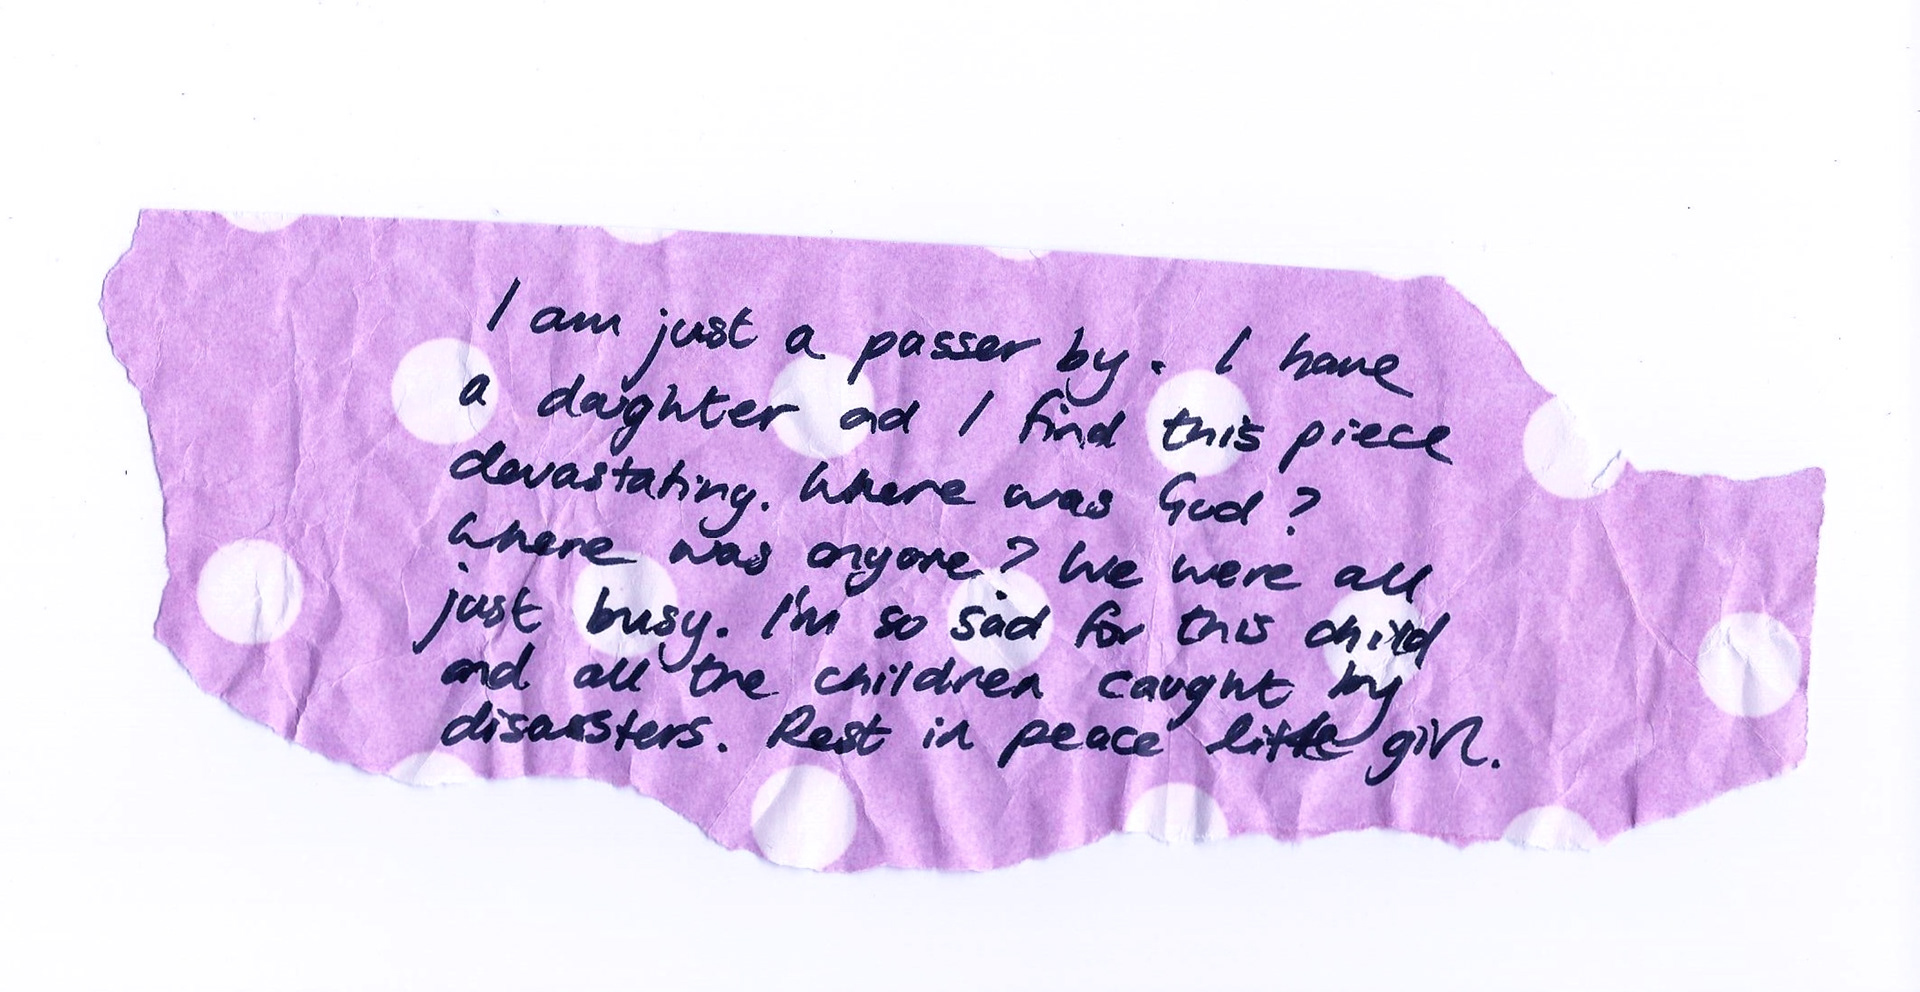 I am just a passer by. I have
a daughter ad I find this piece
devastating. Where was God?
Where was anyone? We were all
just busy. I'm so sad for this child
and all the children caught by
disassters. Rest in peace little girl.